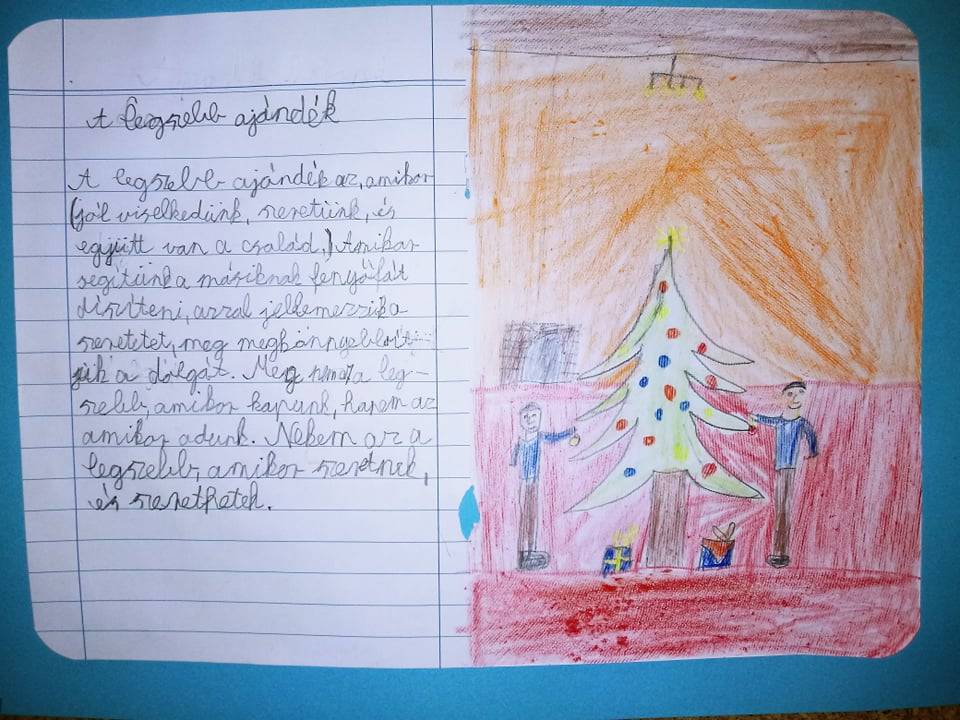 A legszebb ajándék
A legszebb ajándék az, amikor
(jól viselkedünk, szeretünk, és
együtt van a család.) Amikor
segítünk a másiknak fenyőfát
díszíteni, azzal jellemezzük a
szeretetet, meg megkönnyebbít-
jük a dolgát. Meg nem az a leg-
szebb, amikor kapunk, hanem az
amikor adunk. Nekem az a
legszebb, amikor szeretnek,
és szerethetek.